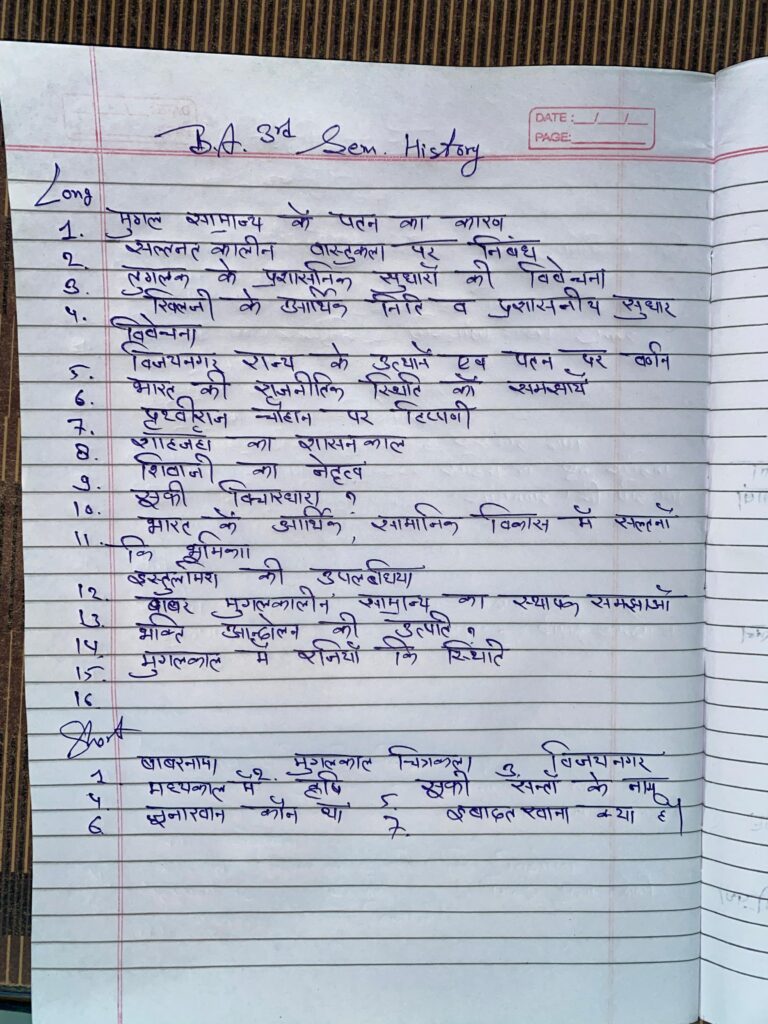 DATE: __/__/__
PAGE:
B.A. 3rd Sem. History
Long
1. मुगल सामाज्य के पतन का कारण
2. सल्तनत कालीन वास्तुकला पर निबंध
3. तुगलक के प्रशासनिक सुधारों की विवेचना
4. खिलजी के आर्थिक निति व प्रशासनीय सुधार
विवेचना
5. विजयनगर राज्य के उत्थान एंव पतन पर
6. भारत की राजनीतिक स्थिति को समझायें
7. पृथ्वीराज चौहान पर टिप्पणी
8. शाहजहां का शासन काल
9. शिवाजी का नेतृत्व
10. सूफी विचारधारा ?
11. भारत के आर्थिक, सामाजिक विकास में सल्तनों
कि भूमिका
12. इल्तुतमिश की उपलबधिया
13. बाबर मुगलकालीन सामाज्य का स्थापक समझाओं
14. भक्ति आन्दोलन की उत्पति ?
15. मुगलकाल में स्त्रियों कि स्थिति
16.
Short
1. बाबरनामा 2. मुगलकाल चित्रकला 3. विजयनगर
4. मध्यकाल में कृषि 5. सूफी सन्तों के नाम
6. कौन था 7. इबादतखाना क्या है